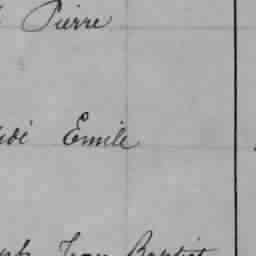 Pierre
Emile
Jean Baptist